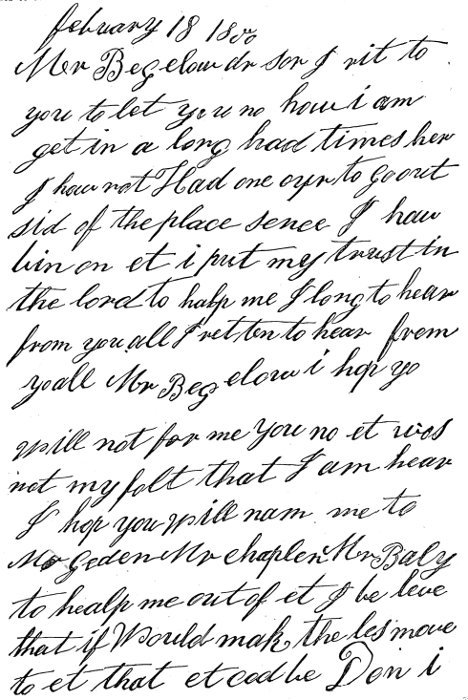 february 18 18
Mr Begelow dr ser I rit to
you to let you no how i am
get in a long had times her
I hav not Had one oyr to go out
sid of the place sence I hav
bin on et i put my trust in
the lord to halp me I long to hear
from you all I ret ten to hear frem
yoall Mr Begelow i hop yo
will not for me you no et was
not my folt that I am hear
I hop you will nam me to
Mr Geden Mr chaplen Mr Baly
to healp me out of et I be leve
that if Would mak the les move
to et that et cod be Don i